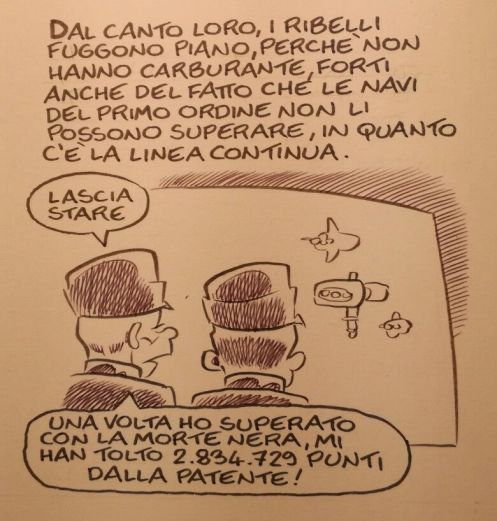 DAL CANTO LORO, I RIBELLI
FUGGONO PIANO, PERCHÈ NON
HANNO CARBURANTE, FORTI
ANCHE DEL FATTO CHE LE NAVI
DEL PRIMO ORDINE NON LI
POSSONO SUPERARE, IN QUANTO
C'È LA LINEA CONTINUA.
LASCIA
STARE
UNA VOLTA HO SUPERATO
CON LA MORTE NERA, MI
HAN TOLTO 2.834.729 PUNTI
DALLA PATENTE!